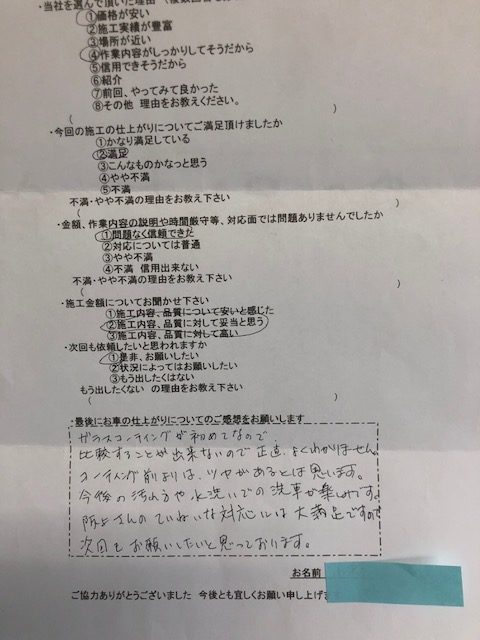 ・当社を選んで頂いた理由 (複数回答
①価格が安い
②施工実績が豊富
③場所が近い
④作業内容がしっかりしてそうだから
⑤信用できそうだから
⑥紹介
⑦前回、やってみて良かった
⑧その他 理由をお教えください。
( )
・今回の施工の仕上がりについてご満足頂けましたか
①かなり満足している
②満足
③こんなものかなっと思う
④やや不満
⑤不満
不満・やや不満の理由をお教え下さい
( )
・金額、作業内容の説明や時間厳守等、対応面では問題ありませんでしたか
①問題なく信頼できた
②対応については普通
③やや不満
④不満 信用出来ない
不満・やや不満の理由をお教え下さい
( )
・施工金額についてお聞かせ下さい
①施工内容、品質について安いと感じた
②施工内容、品質に対して妥当と思う
③施工内容、品質に対して高い
・次回も依頼したいと思われますか
①是非、お願いしたい
②状況によってはお願いしたい
③もう出したくはない
もう出したくない の理由をお教え下さい
( )
・最後にお車の仕上がりについてのご感想をお願いします
ガラスコーティングが初めてなので
比較することが出来ないので正直、よくわかりません。
コーティング前よりは、ツヤがあるとは思います。
今後の汚れ方や水洗いでの洗車が楽しみです。
さんのていねいな対応には大満足ですので
次回もお願いしたいと思っております。
お名前
ご協力ありがとうございました 今後とも宜しくお願い申し上げます